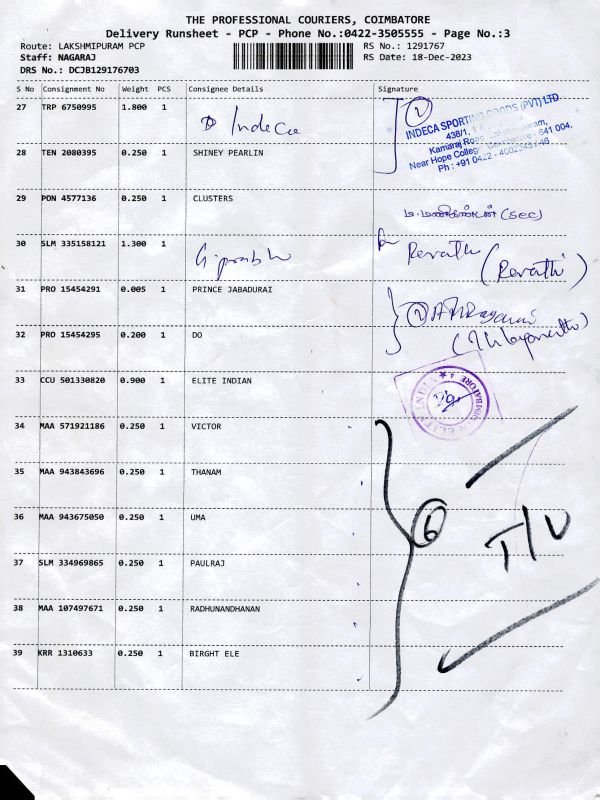 THE PROFESSIONAL COURIERS, COIMBATORE
Delivery Runsheet - PCP - Phone No.:0422-3505555 - Page No.:3
Route: LAKSHMIPURAM PCP RS No.: 1291767
Staff: NAGARAJ RS Date: 18-Dec-2023
DRS No.: DCJB129176703
S No Consignment No Weight PCS Consignee Details Signature
27 TRP 6750995 1.800 1 Indeca 2
INDECA SPORTING GOODS (PVT) LTD
438/1,
Kamaraj Road,
Near Hope College, Coimbatore - 641 004,
Ph : +91 0422 -
28 TEN 2080395 0.250 1 SHINEY PEARLIN
29 PON 4577136 0.250 1 CLUSTERS (sec)
30 SLM 335158121 1.300 1 G. prabhu Revathi (Revathi)
31 PRO 15454291 0.005 1 PRINCE JABADURAI 2
32 PRO 15454295 0.200 1 DO
33 CCU 501330820 0.900 1 ELITE INDIAN
ELITE INDIAN COIMBATORE
34 MAA 571921186 0.250 1 VICTOR
35 MAA 943843696 0.250 1 THANAM
36 MAA 943675050 0.250 1 UMA 6 T/V
37 SLM 334969865 0.250 1 PAULRAJ
38 MAA 107497671 0.250 1 RADHUNANDHANAN
39 KRR 1310633 0.250 1 BIRGHT ELE